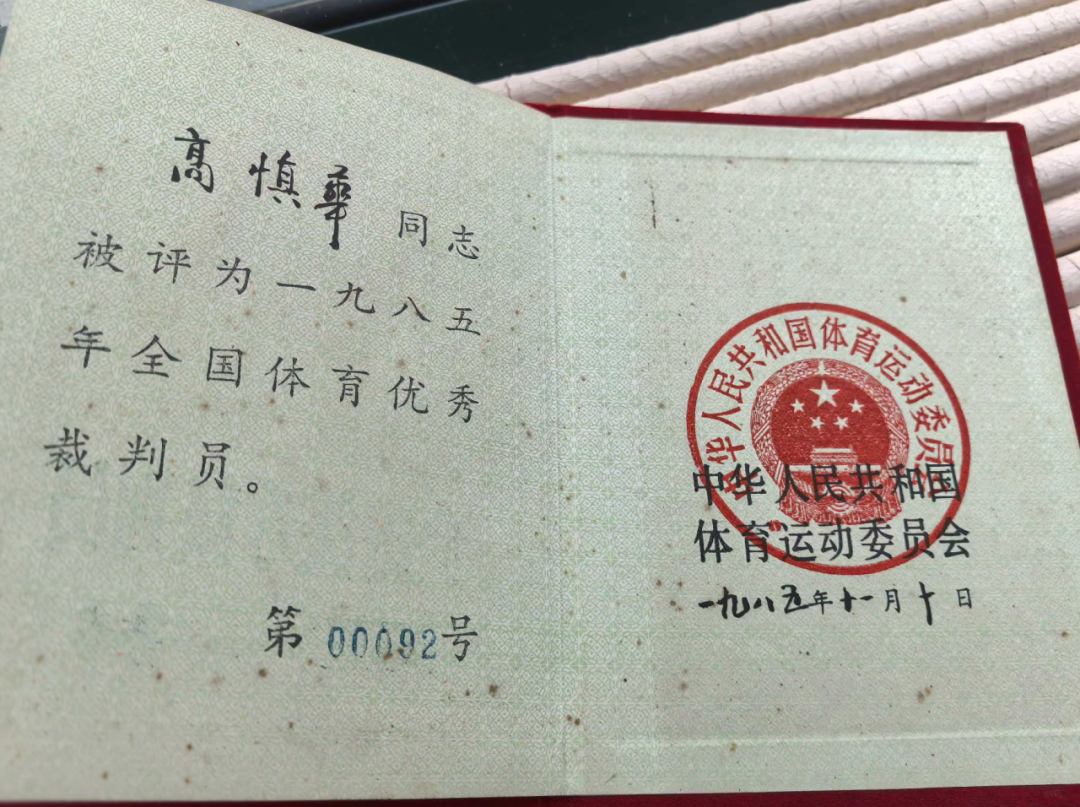 高慎華 同志
被评为一九八五
年全国体育优秀
裁判员。
第 00092 号
中华人民共和国体育运动委员会
中华人民共和国
体育运动委员会
一九八五年十一月十日